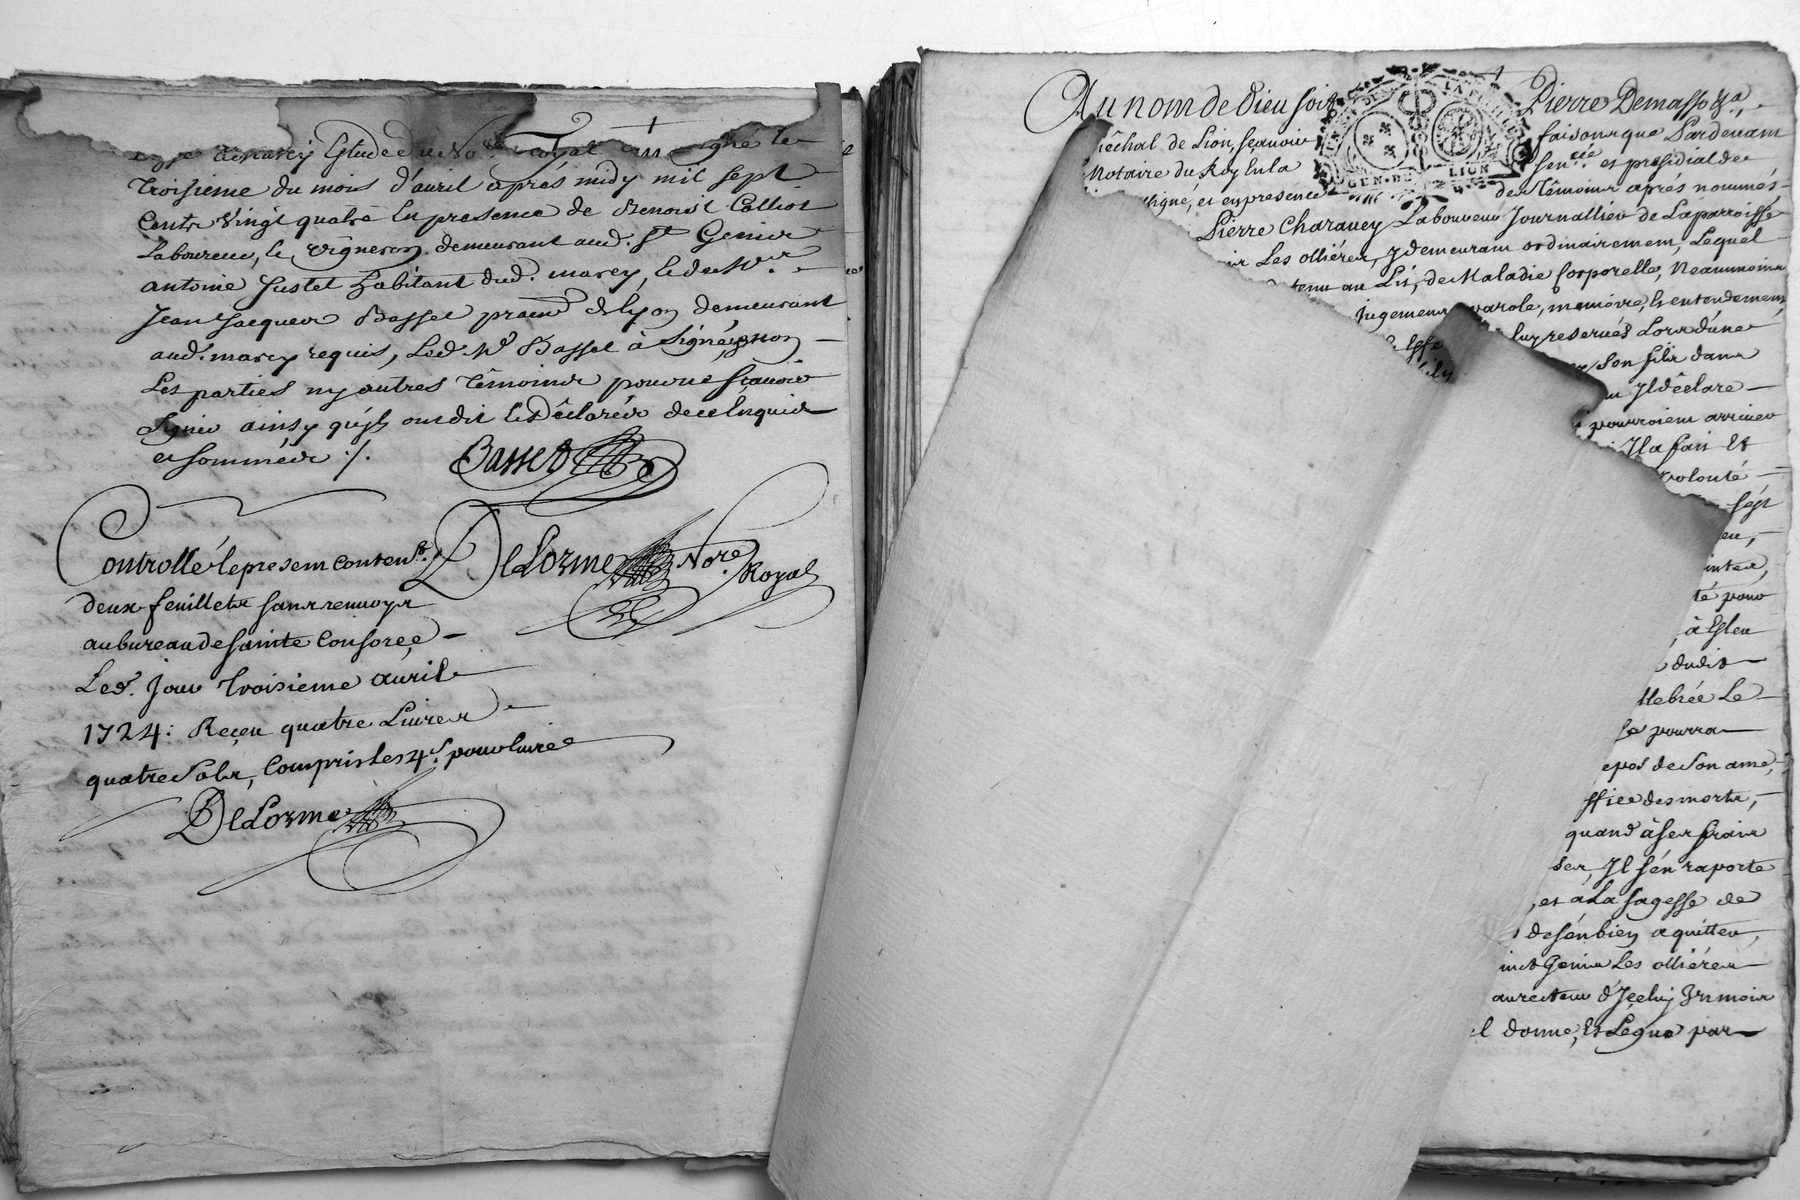 demarcy Estude
troisieme du mois d'auril aprés midy mil sept
Cents Vingt quatre En presence de Benoist Colliot
Laboureur, le Vigneron demeurant aud. St Genier
antoine Justet habitant dud. marcy, led. Mr.
Jean Jacques Basset de Lyon demeurant
aud. marcy requis, Led. Mr Basset à Signé, & non
Les parties ny autres témoins pour ne sçauoir
signer ainsy qu'jls ont dit Et déclarés de ce Enquis
et sommés ./.
Basset
DeLorme Nore. Royal
Controllé le present conten.
deux feuillets sans renuoys
au bureau de sainte Consorce
Led. Jour troisieme auril
1724: Reçeu quatre Liures
quatre Sols, Compris les 4s. pour liure
DeLorme
Au nom de Dieu soit Pierre Demasso &a.
échal de Lion, sçauoir faisons que Pardeuant
Notaire du Roy En la Sen.cée et presidial de
signé, et en presence des Témoins aprés nommés
GEN. DE LION
Pierre Charauey Laboureur Journallier de La parroisse
Les olliéres, y demeurant ordinairement, Lequel
tenu au Lit, de Maladie Corporelle, Neanmoins
jugement parole, memoire, Et entendement,
luy reserués Lors d'une
son fils dans
Jl déclare
pourroient arriuer
Jl a fait Et
volonté
sept
té pour
à Esleu
dudit
llebrée Le
se pourra
epos de Son ame,
ffice des morts,
quand à Ses frais
ses, Jl s'en raporte
, et a La sagesse de
de s'en bien aquitter,
inct Genis Les olliéres
au recteur d'Jçeluy
l donne, Et Legue par